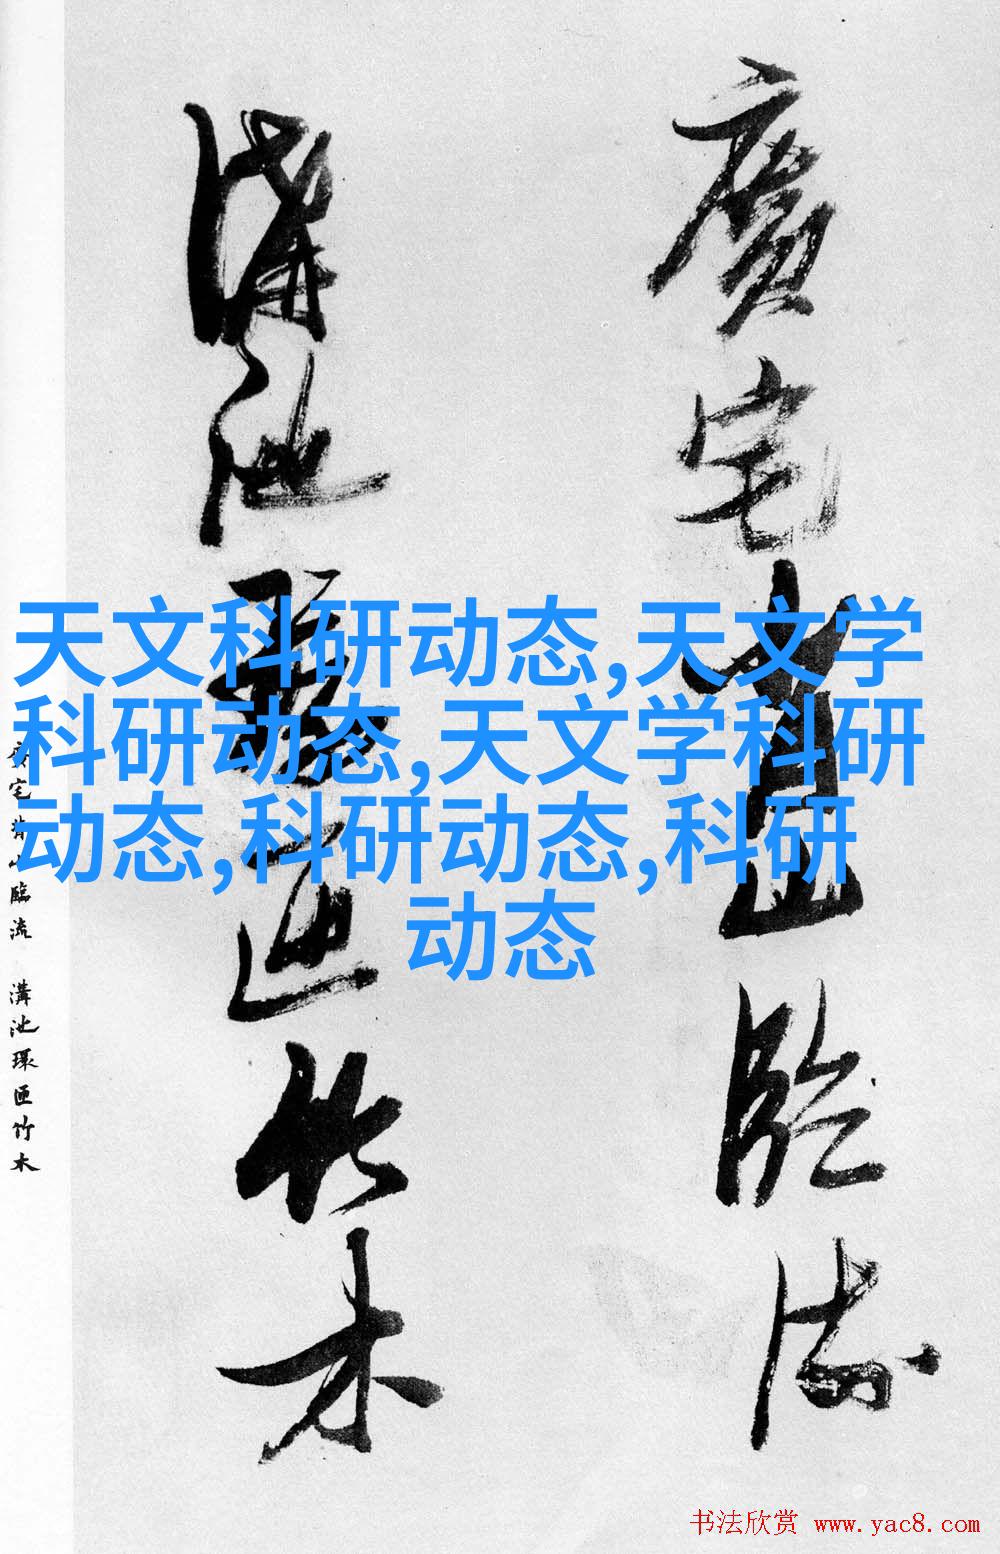 廣宅背山臨流
溝池環匝竹木
天文科研动态,天文学
科研动态,天文学科研
动态,科研动态,科研
动态
廣宅背山臨流 溝池環匝竹木
书法欣赏 www.yac8.com